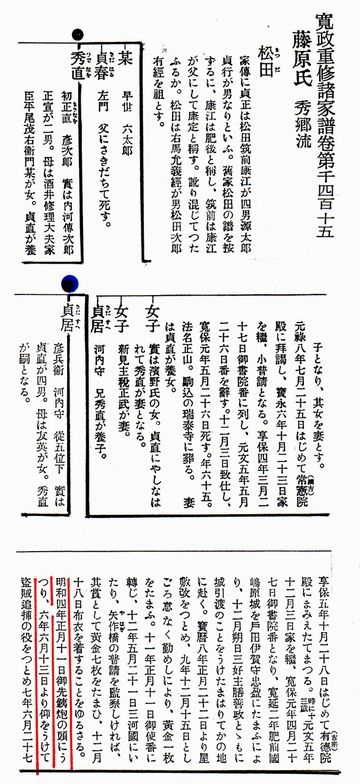 寛政重修諸家譜卷第千四百十五
藤原氏 秀郷流
松田
家傳に貞正は松田筑前康江が四男源太郎
貞行が男なりといふ。舊家松田の譜を按
ずるに、康江は肥後と稱し、筑前は康江
が父にして康定と稱す。訛り混じてつた
ふるか。松田は右馬允義經が男松田次郎
有經を祖とす。
某
早世 六太郎
貞春
左門 父にさきだちて死す。
秀直
初正直 彦次郎 實は内河傳次郎
正宣が二男。母は酒井修理大夫家
臣平尾茂右衛門某が女。貞直が養
子となり、其女を妻とす。
元祿八年七月二十五日はじめて常憲院
殿に拜謁し、寶永六年十月二十三日家
を繼、小普請となる。享保四年三月二
十七日御書院番に列し、元文五年五月
二十六日番を辭す。十二月三日致仕し、
寛保元年五月二十六日死す。年六十五。
法名正山。駒込の瑞泰寺に葬る。 妻
は貞直が養女。
女子
實は濱野氏の女。貞直にやしなは
れて秀直が妻となる。
女子
新見主税正武が妻。
貞居
河内守 兄秀直が養子。
貞居
彦兵衛 河内守 從五位下 實は
貞直が四男。母は友英が女。秀直
が嗣となる。
享保五年十月二十八日はじめて有德院
殿にまみえたてまつる。時に十三歳元文五年
十二月三日家を繼、寛保元年四月二十
七日御書院番となり、寛延二年肥前國
嶋原城を戸田伊賀守忠盈にたまふによ
り、十二月朔日三好主膳善政とともに
城引渡のことをうけたまはりてかの地
に赴く。寶暦八年正月二十二日より屋
敷改をつとめ、九年十二月十五日とし
ごろ怠なく勤めしにより、黄金一枚
をたまふ。十一年正月十一日御使番に
轉じ、十二年五月二十一日三河國にい
たり、矢作橋の普請を監察しければ、
其賞として黄金七枚をたまひ、十二月
十八日布衣を着することをゆるさる。
明和四年正月十一日御先鐵炮の頭にう
つり、六年六月十三日より仰をうけて
盗賊追捕の役をつとめ七年六月二十七